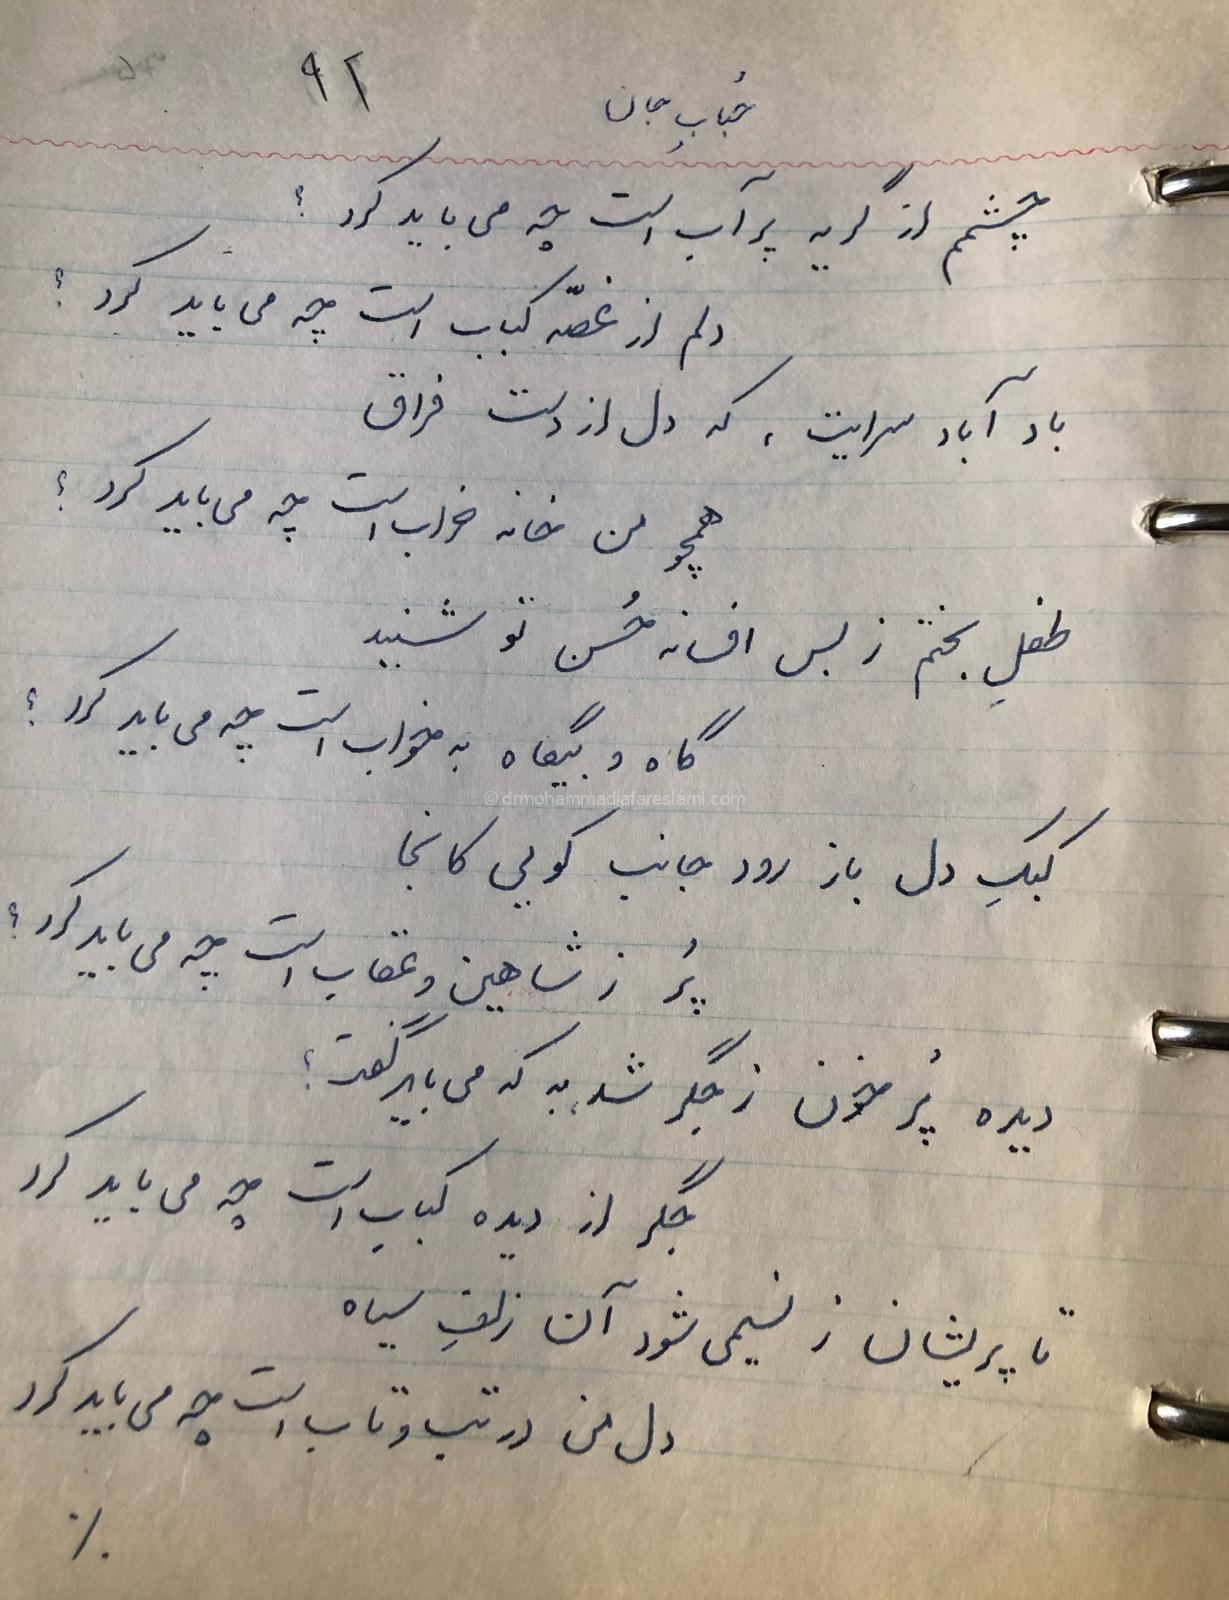 ۹۲
حُبابِ جان
چشمم از گریه پر آب است چه می باید کرد ؟
دلم از غصّه کباب است چه می باید کرد ؟
باد آباد سرایت ، که دل از دست فراق
همچو من خانه خراب است چه می باید کرد ؟
طفلِ بختم ز بس افسانه حُسن تو شنید
گاه و بیگاه به خواب است چه می باید کرد ؟
© drmohammadjafareslami.com
کبکِ دل باز رود جانب کویی کانجا
پُر ز شاهین و عقاب است چه می باید کرد ؟
دیده پُر خون ز جگر شد، به که می باید گفت ؟
جگر از دیده کباب است چه می باید کرد
تا پریشان ز نسیمی شود آن زلفِ سیاه
دل من در تب و تاب است چه می باید کرد
./.